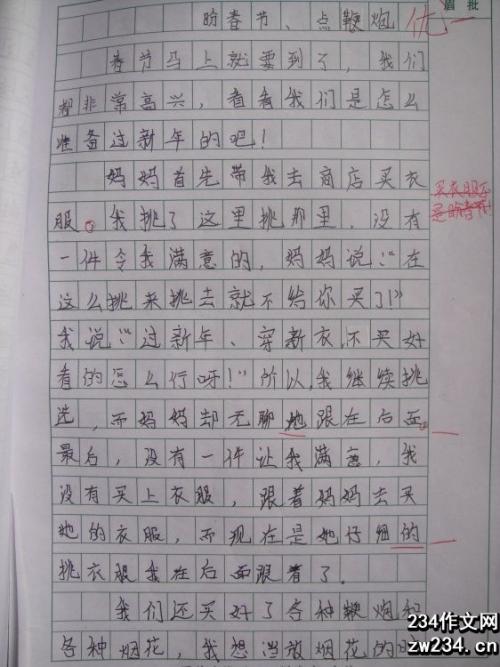 眉批
盼春节、点鞭炮 优-
春节马上就要到了，我们
都非常高兴，看看我们是怎么
准备过新年的吧！
妈妈首先带我去商店买衣
服。我挑了这里挑那里，没有
一件令我满意的，妈妈说：“在
这么挑来挑去就不给你买了！”
我说：“过新年、穿新衣，不买好
看的怎么行呀！”所以，我继续挑
选，而妈妈却无聊地跟在后面。
最后，没有一件让我满意，我
没有买上衣服，跟着妈妈去买
她的衣服，而现在是她仔细的
挑衣服我在后面跟着了。
我们还买好了各种鞭炮和
各种烟花，我想当放烟花的时
买衣服不
是盼春节！
234作文网
zw234.cn